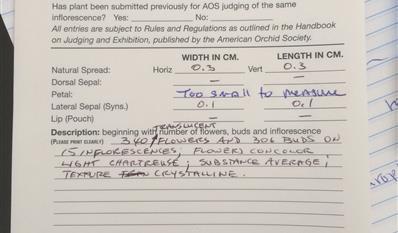 Has plant been submitted previously for AOS judging of the same
inflorescence? Yes: No:
All entries are subject to Rules and Regulations as outlined in the Handbook
on Judging and Exhibition, published by the American Orchid Society.
WIDTH IN CM. LENGTH IN CM.
Natural Spread: Horiz 0.3 Vert 0.3
Dorsal Sepal: — —
Petal: TOO SMALL TO MEASURE
Lateral Sepal (Syns.) 0.1 0.1
Lip (Pouch) — —
TRANSLUCENT
Description: beginning with number of flowers, buds and inflorescence
(PLEASE PRINT CLEARLY) 340 FLOWERS AND 306 BUDS ON
15 INFLORESCENCES; FLOWERS CONCOLOR
LIGHT CHARTREUSE; SUBSTANCE AVERAGE;
TEXTURE CRYSTALLINE.